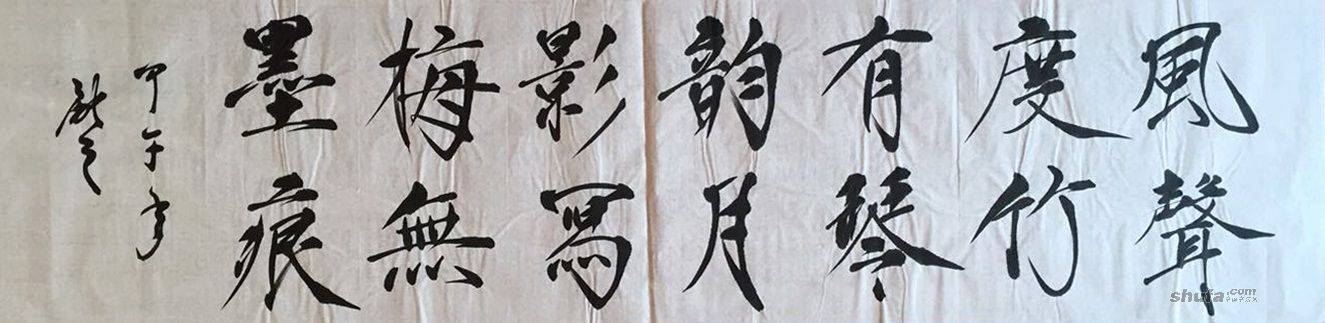 風聲
度竹
有琴
韵月
影寫
梅無
墨痕
甲午年
shufa.com